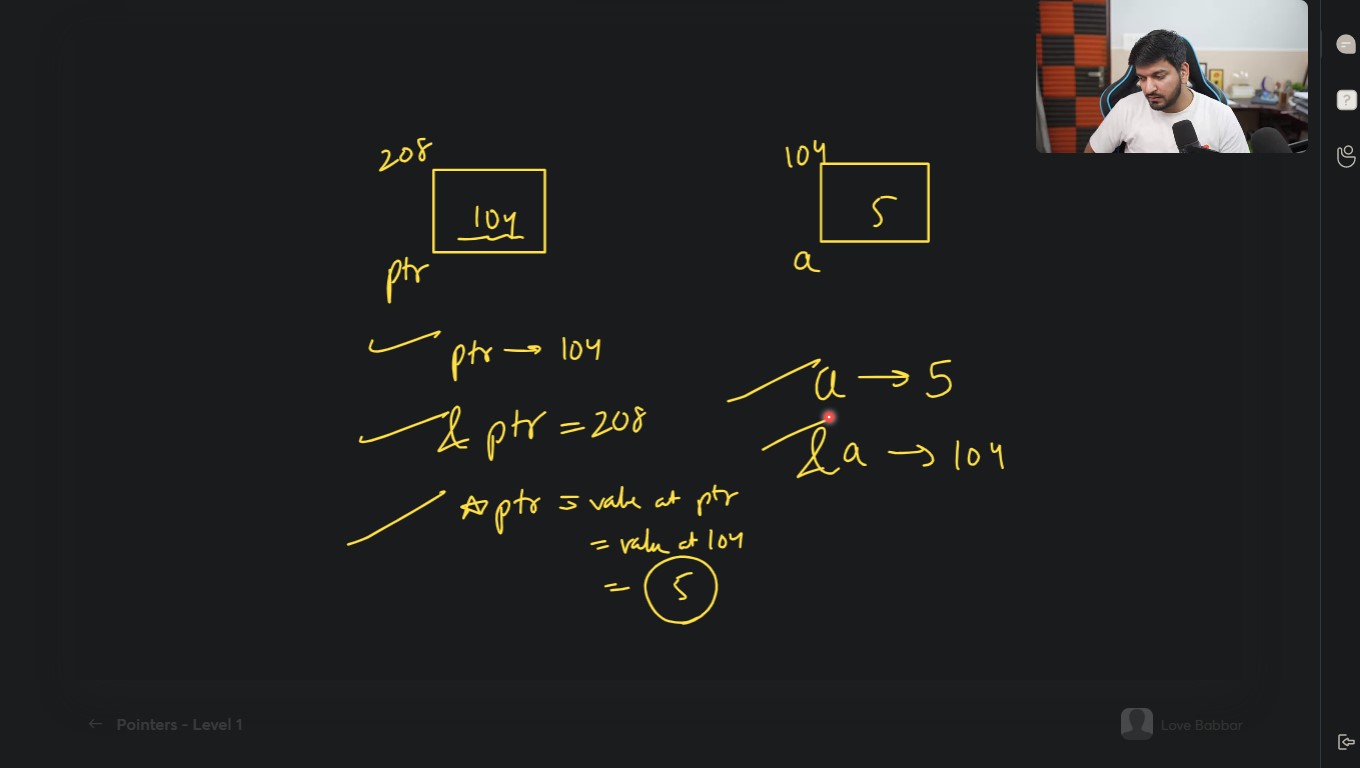 208
104
ptr
104
5
a
ptr → 104
& ptr = 208
*ptr = value at ptr
= value at 104
= 5
a → 5
&a → 104
?
← Pointers - Level 1
Love Babbar